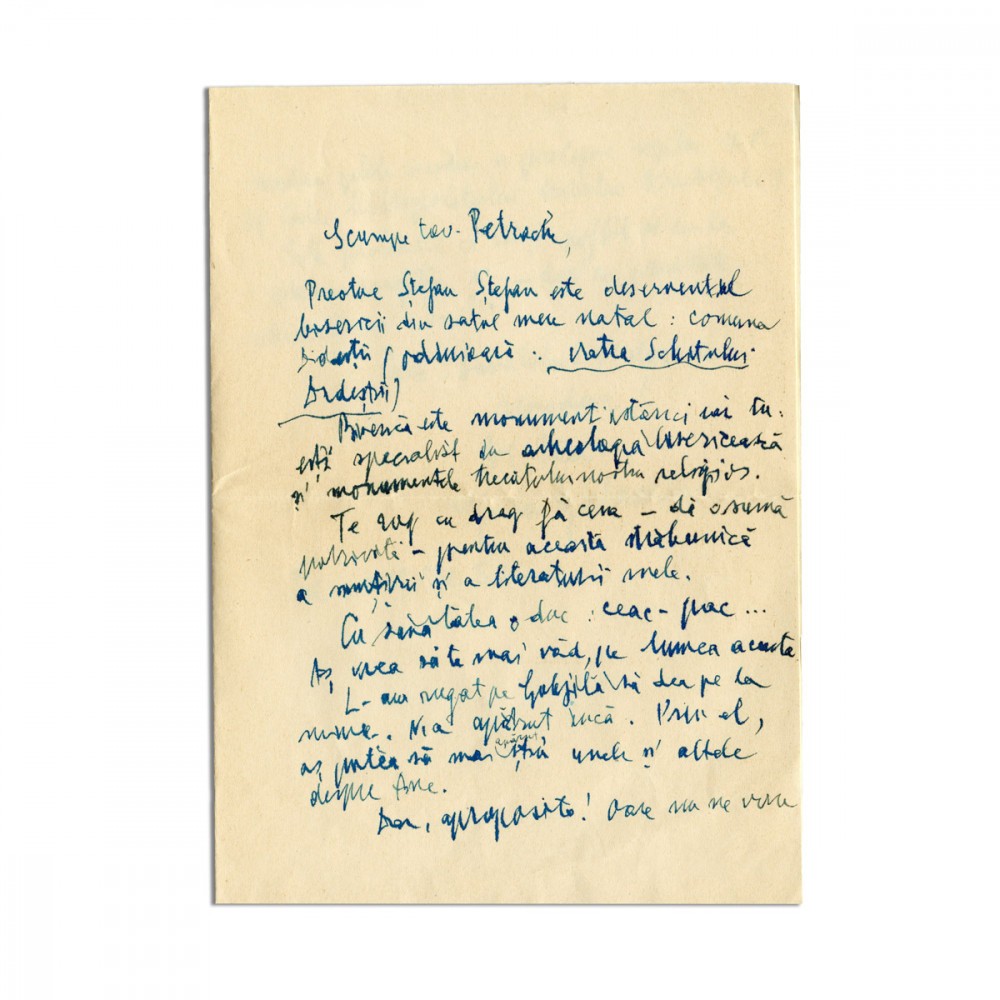 Scumpe tov. Petrache,
Preotul Ștefan Ștefan este deserventul
bisericii din satul meu natal: comuna
(odinioară: Vatra Schitului
Biserica este monument istoric iar tu
ești specialist în arheologia bisericească
și monumentele trecutului nostru religios.
Te rog cu drag fă ceva – dă o sumă
potrivită – pentru aceasta străbunică
a și a literaturii mele.
Cu sănătatea o duc: ceac-pac...
Aș vrea să te mai văd, pe lumea aceasta
L-am rugat pe să dea pe la
mine. N-a apărut încă. Prin el,
aș putea să mai știu unele și altele
despre
Dar, aproposito! Oare nu ne vom